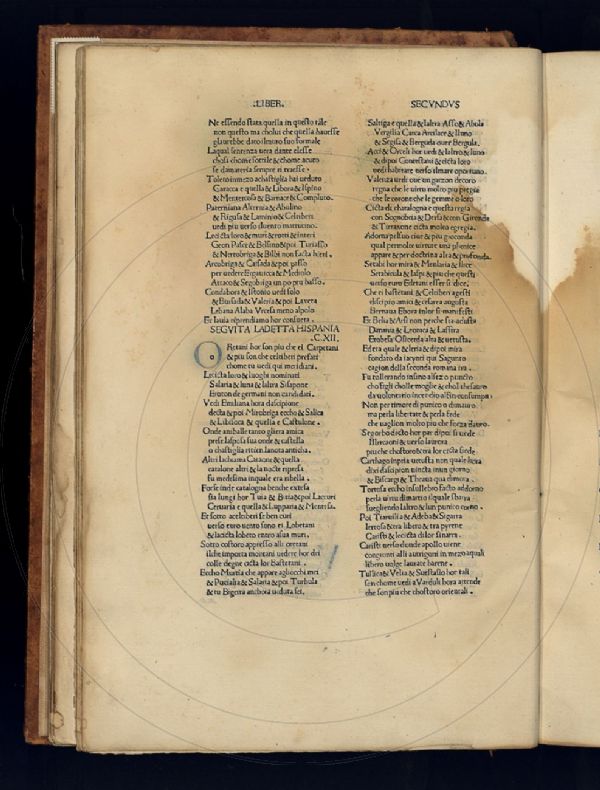 .LIBER.
Ne essendo stata quella in questo tale
non questo ma cholui che quella hauesse
glaurebbe dato il nuro suo formale
Laqual sentenza uera dante elesse
chosi chome sottile & chome acuto
se damateria sempre si traesse.
Toleto in mezo a chastiglia hai ueduto
Caracca e quella & Libora & Ispino
& Mentercosa & Barnacr & Compluto.
Paterniana Alternia & Abulino
& Rigusa & Laminio & Celtiberi
uedi piu uerso iluento
Lecista loro & muri & monti & interi
Geon Paser & Belsino & poi Turiasso
& Nertobriga & Bilbi non facta hieri.
Arcobriga & Caisada & poi passo
per uedere Ergauicca & Mediolo
Attaco & Segobriga un po piu basso.
Condabora & Istonio uedi solo
& Bursada & Valeria & poi Laxera
Lebana Alaba Vrcesa meno alpolo
Et laria riprendiamo hor consuera.
SEGVITA LADETTA HISPANIA
.C.XII.
ORetani hor son piu che el Carpetani
& piu son che celtiberi prefati
chome tu uedi qui meridiani.
Lecista loro & luoghi nominati
Salaria & luna & laltra Sisapone
Eroton de germani non candidati.
Vedi Emiliana hora dascipione
decta & poi Mirobriga eccho & Salica
& Libisoca & quella e Castulone.
Onde aniballe tanto glieta amica
prese laspesa sua onde & castella
o chastiglia ritien lanota anticha.
Altri lachiama Catacne & quella
catalone altri & la nocte ripresa
fu medesima in quale era ribella.
Forse indi catalogna benche extesa
sia lungi hor Tuia & Biatia & poi Laccuri
Ceruaria e quella & Lupparia & Mentesa.
Et sotto aceltiberi se ben curi
uerso euro uento sono ei Lobetani
& lacista lobeto entro asua muri.
Sotto costoro appresso alli oretani
ilsite importa montani uedere hor dei
colle degne cista lor Bastetani.
Eccho Murtia che appare agliocchi mei
& Pucialia & Salaria & poi Turbula
& tu Bigerra anchora ueduta sei.
SECVNDVS
Saltiga e quella & laltra Asso & Abula
Vergilia Carca Arcilace & Ilinio
& Segisa & Bergula oure Bergula.
Acci & Orceli hor uedi & laltro & luno
& dipoi Contestani & cista loro
uedi habitare uerso ilmare oportuno.
Valenza uedi oue un garzon decoro
regna che le uirtu molto piu pregia
che le corone che le gemme o loro
Cicta di chatalogna e questa regia
con Sognobria & Dersa & con Girenda
& Terracone cicta molto egregia.
Adorna possuo ciue & piu gioconda
qual per molte uirtute una phenice
appare & per doctrina alta & profonda.
Setabi hor mira & Menlaria & Ilice
Setabicula & Iaspi & piu che questa
uerso euro Edetani esser si dice.
Che ei bastetani & Celtiberi agesti
dasci pio amici & cesarea augusta
Bernaua Ebora infor si manifesti.
Et Belia & Arsi non perche sia adusta
Damnia & Leonica & Lassira
Etobesa Osicerda alta & uetusta.
Edera quale & leria & dipoi mira
fondato da iacynti qui Sagunto
cagion della seconda romana ira.
Fu tollerando insino alsezo puncto
cho figli cholle moglie & chol thesauro
da uolontario incendio alfin consumpto
Non per timore di punico o dimauro
ma perla libertate & perla fede
che uaglion molto piu che forza dauro.
Segorbo decto hor per dipoi si uede
Illercaoni & uerso laurora
piu che chostoro & tra lor cista siede
Carthago inpria uetusta non quale hora
dixi dascipion uincta in un giorno
& Biscargi & Theaua qui dimora.
Tortosa eccho insullebro facto adorno
perla uirtu dimarto ilquale sbarra
suegliendo laltro & lun punico corno.
Poi Traaulia & Adeba & Sigarra
Iertosa & tra libero & tra pyrene
Caristi & lecista dilor sinarra.
Caristi uerso donde apollo uiene
congiunti alli autrigoni in mezo aquali
libero uolge laurate harene.
Tullica & Velia & Suestasso hor tali
son chome uedi aVarduli hora attende
che son piu che chostoro orientali.